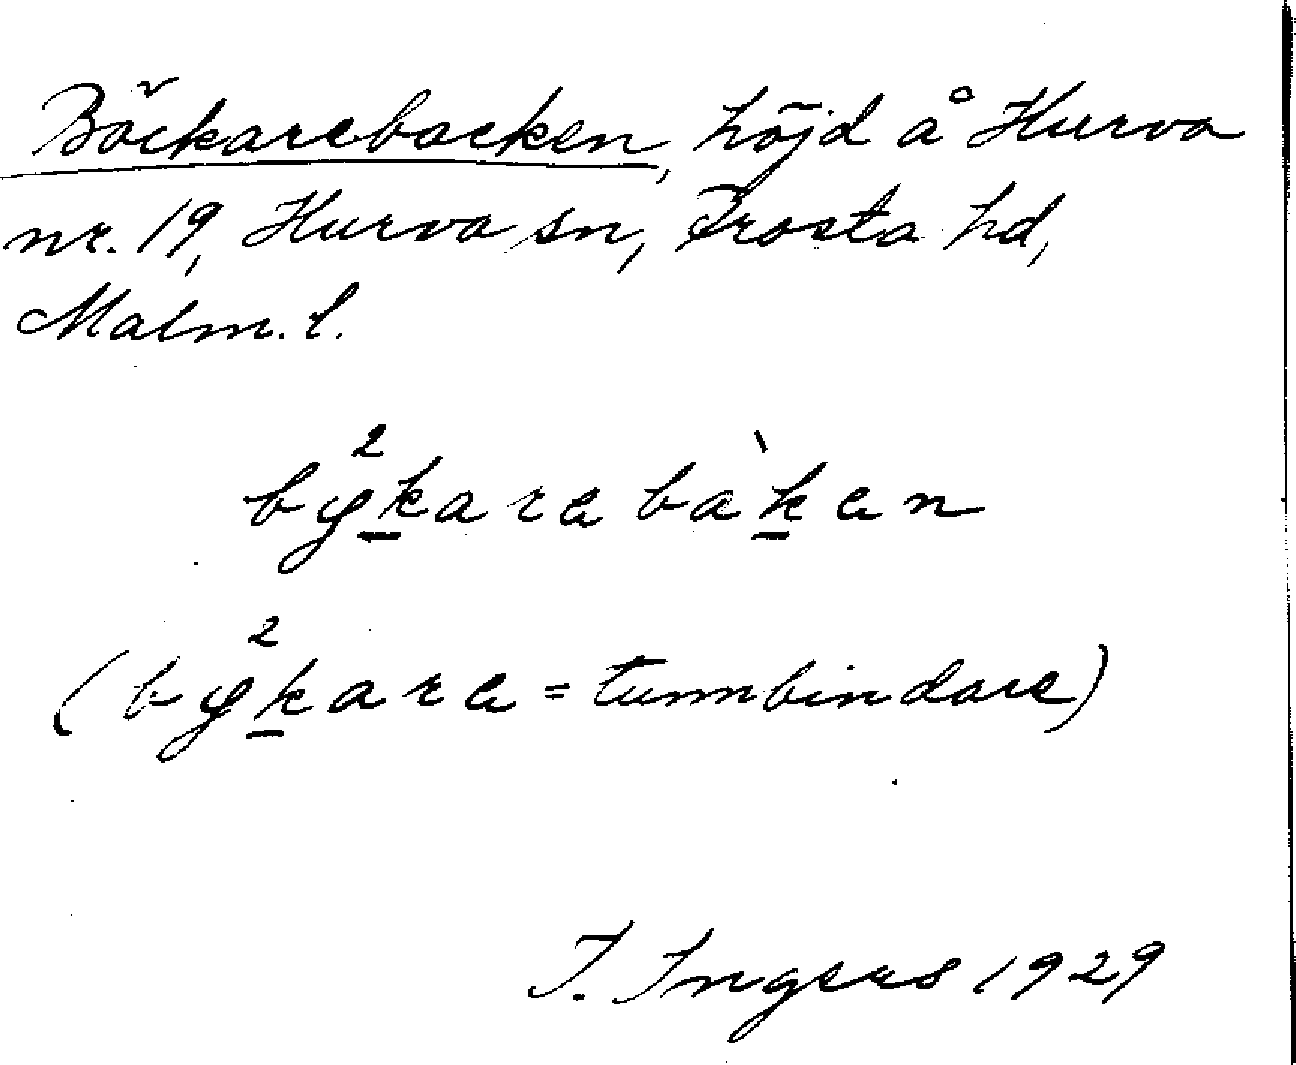 Böckarebacken, höjd å Hurva
nr. 19, Hurva sn, Frosta hd,
Malm. l.
by²karebàken
(by²kare = tunnbindare)
I. Ingers 1929